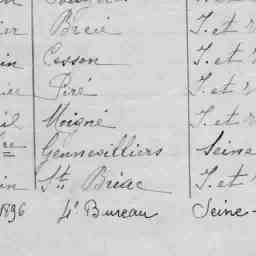 ier Breié I. et
in Cesson I. et
ier Piré I. et
il Moigné I. et
re Gennevilliers Seine
in St. Briac I. et
1896 4e Bureau Seine-